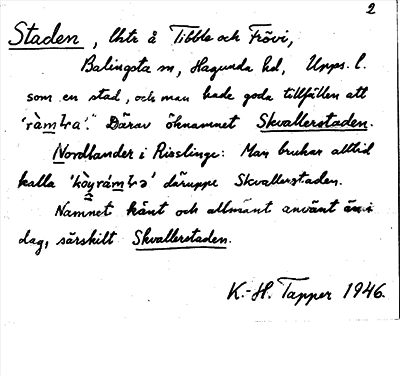 2
Staden, åkr å Tibble och Frövi,
Balingsta sn, Hagunda hd, Upps. l.
som en stad, och man hade goda tillfällen att
Därav öknamnet Skvallerstaden.
Nordlander i Risslinge: Man brukar alltid
kalla däruppe Skvallerstaden.
Namnet känt och allmänt använt än i
dag, särskilt Skvallerstaden.
K.-H. Tapper 1946.